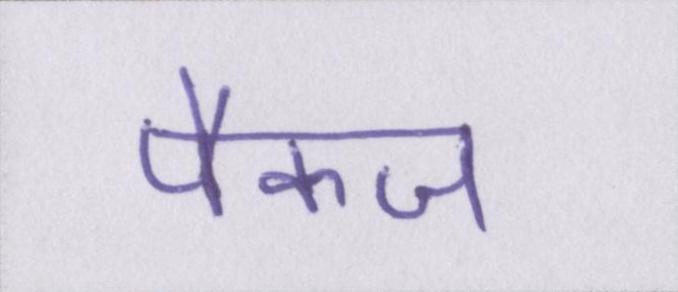 पैकज